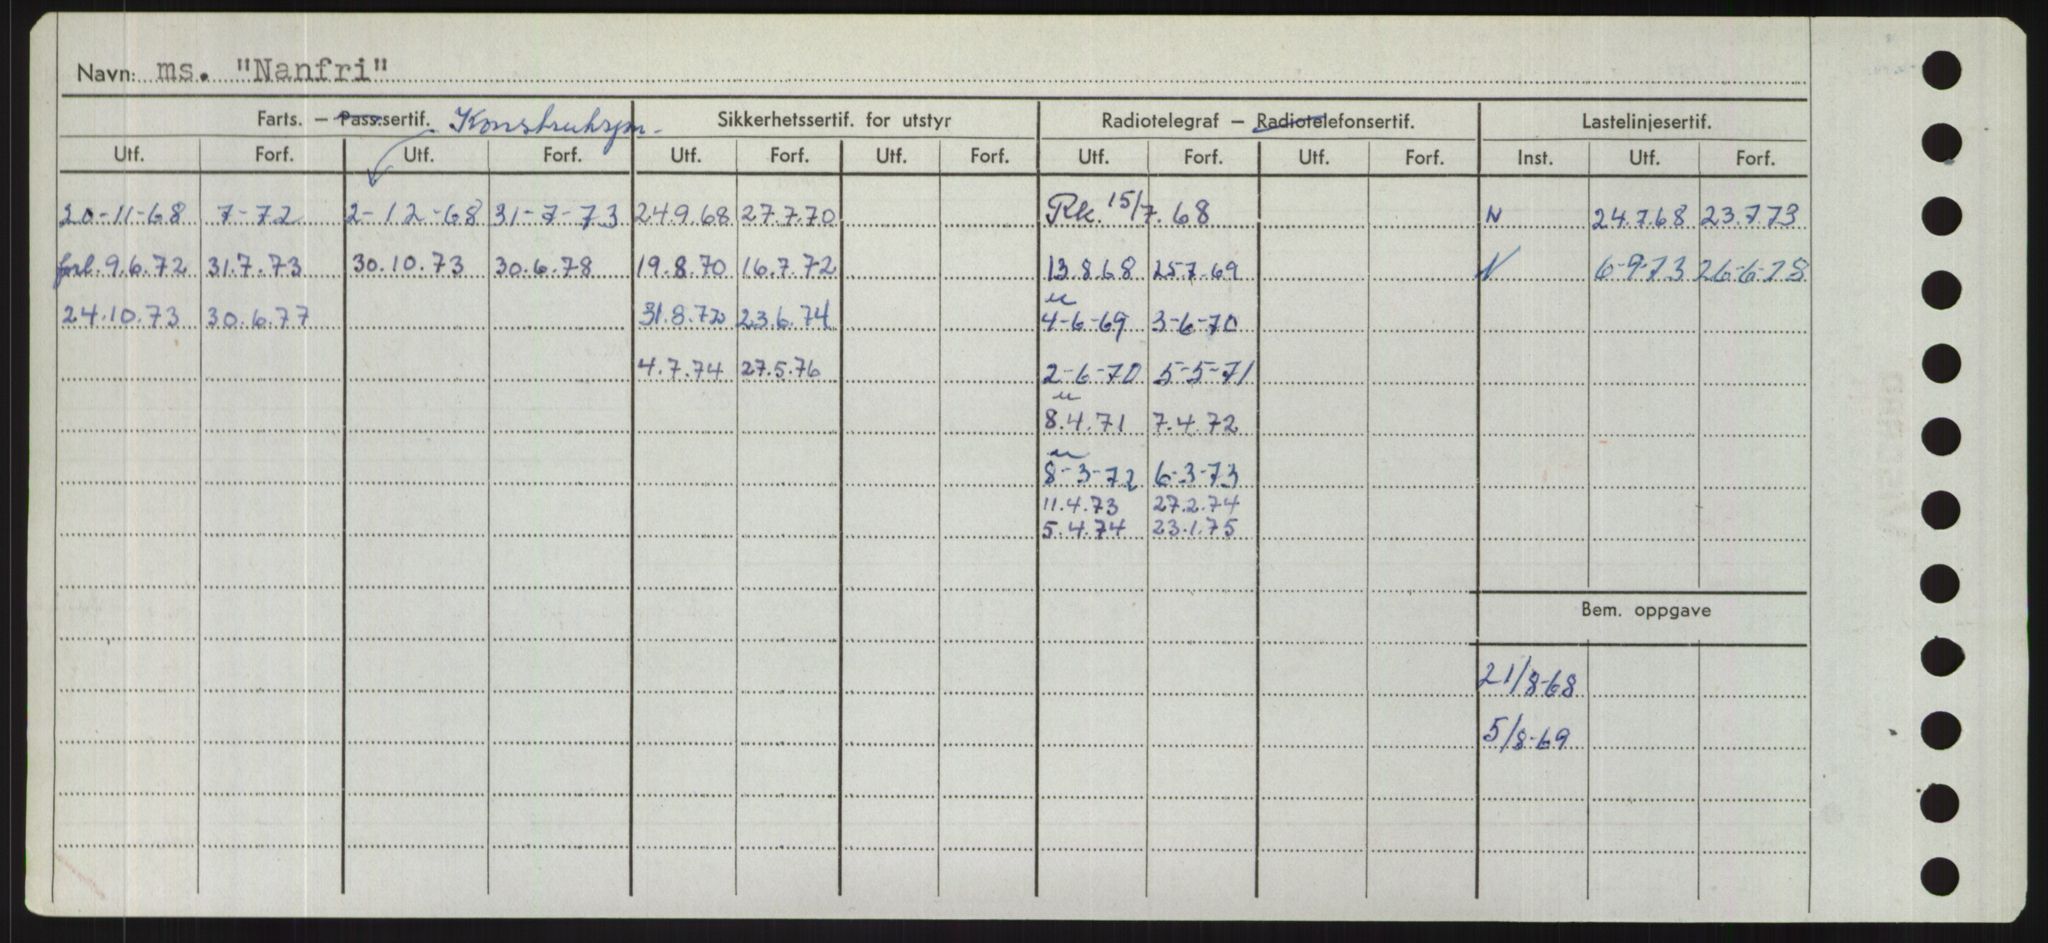 Navn: ms. "Nanfri"
Farts. — Pass.sertif. Konstruksjon- Sikkerhetssertif. for utstyr Radiotelegraf — Radiotelefonsertif. Lastelinjesertif.
Utf. Forf. Utf. Forf. Utf. Forf. Utf. Forf. Utf. Forf. Utf. Forf. Inst. Utf. Forf.
20-11-68 7-72 2-12-68 31-7-73 24.9.68 27.7.70 Rk. 15/7.68 N 24.7.68 23.7.73
forl. 9.6.72 31.7.73 30.10.73 30.6.78 19.8.70 16.7.72 13.8.68 25.7.69 N 6-9-73 26-6-78
24.10.73 30.6.77 31.8.72 23.6.74 4-6-69 3-6-70
4.7.74 27.5.76 2-6-70 5-5-71
8.4.71 7.4.72
8-3-72 6-3-73
11.4.73 27.2.74
5.4.74 23.1.75
Bem. oppgave
21/8-68
5/8-69